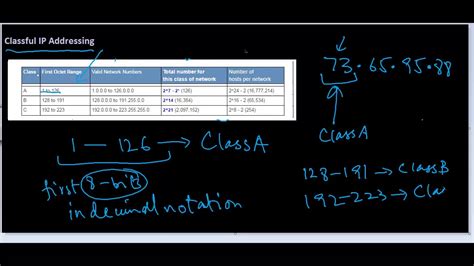 Classful IP Addressing
Class First Octet Range Valid Network Numbers Total number for this class of network Number of hosts per network
A 1 to 126 1.0.0.0 to 126.0.0.0 (126) 2^24 - 2 (16,777,214)
B 128 to 191 128.0.0.0 to 191.255.0.0 2^14 (16,384) 2^16 - 2 (65,534)
C 192 to 223 192.0.0.0 to 223.255.255.0 2^21 (2,097,152) 2^8 - 2 (254)
73.65.95.88
Class A
1 — 126 → Class A
first 8-bits
in decimal notation
128-191 → Class B
192-223 → Cla